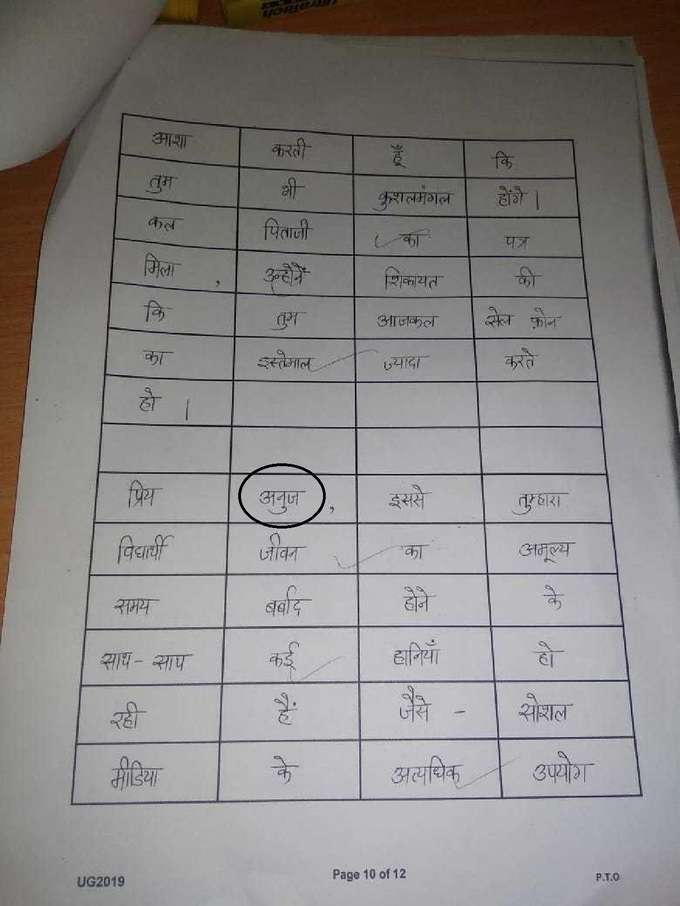 आशा करती हूँ कि
तुम भी कुशलमंगल होंगे |
कल पिताजी का पत्र
मिला , उन्होनें शिकायत की
कि तुम आजकल सेल फ़ोन
का इस्तेमाल ज्यादा करते
हो |
प्रिय अनुज , इससे तुम्हारा
विद्यार्थी जीवन का अमूल्य
समय बर्बाद होने के
साथ - साथ कई हानियाँ हो
रही हैं जैसे - सोशल
मीडिया के अत्यधिक उपयोग
UG2019 Page 10 of 12 P.T.O